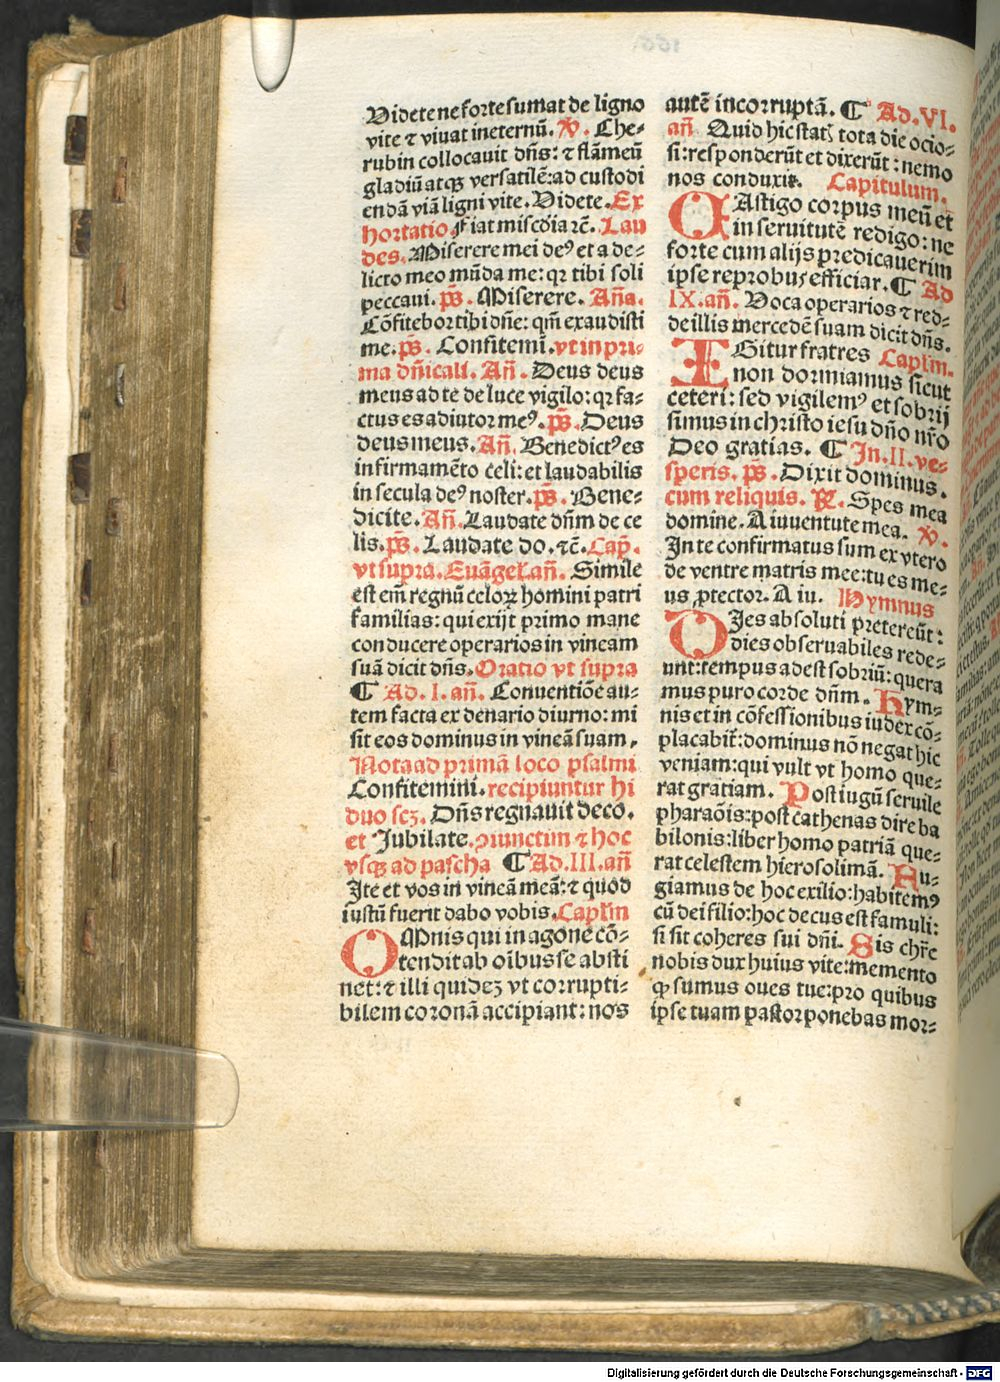 Videte ne forte sumat de ligno
vite ⁊ viuat in eternũ. ℣. Che⸗
rubin collocauit dñs: ⁊ flãmeũ
gladiũ atqꝫ versatilẽ: ad custodi
endã viã ligni vite. Videte. Ex
hortatio. Fiat misc̃dia ⁊c̃. Lau
des. Miserere mei deꝰ et a de⸗
licto meo mũda me: qꝛ tibi soli
peccaui. p̃s. Miserere. Aña.
Cõfitebor tibi dñe: qm̃ exaudisti
me. p̃s. Confitemĩ. vt in pri⸗
ma dñicali. Añ. Deus deus
meus ad te de luce vigilo: qꝛ fa⸗
ctus es adiutor meꝰ. p̃s. Deus
deus meus. Añ. Benedictꝰ es
in firmamẽto celi: et laudabilis
in secula deꝰ noster. p̃s. Bene⸗
dicite. Añ. Laudate dñm de ce
lis. p̃s. Laudate do. ⁊c̃. Cap̃.
vt supra. Euãgel. añ. Simile
est em̃ regnũ celoꝝ homini patri
familias: qui exijt primo mane
conducere operarios in vineam
suã dicit dñs. Oratio vt supra
¶ Ad. I. añ. Conuentiõe au⸗
tem facta ex denario diurno: mi
sit eos dominus in vineã suam.
Nota ad primã loco psalmi
Confitemini. recipiuntur hi
duo scꝫ. Dñs regnauit deco.
et Jubilate. ꝯiunctim ⁊ hoc
vsqꝫ ad pascha ¶ Ad. III. añ
Ite et vos in vineã meã: ⁊ quod
iustũ fuerit dabo vobis. Caplm̃
OMnis qui in agone cõ⸗
tendit ab oĩbus se absti
net: ⁊ illi quideꝫ vt corrupti⸗
bilem coronã accipiant: nos
autẽ incorruptã. ¶ Ad. VI.
añ Quid hic statꝭ tota die ocio⸗
si: responderũt et dixerũt: nemo
nos conduxit. Capitulum.
CAstigo corpus meũ et
in seruitutẽ redigo: ne
forte cum alijs predicauerim
ipse reprobus efficiar. ¶ Ad
IX. añ. Voca operarios ⁊ red⸗
de illis mercedẽ suam dicit dñs.
IGitur fratres Caplm̃.
non dormiamus sicut
ceteri: sed vigilemꝰ et sobrij
simus in christo iesu dño nr̃o
Deo gratias. ¶ In. II. ve⸗
speris. p̃s. Dixit dominus.
cum reliquis. ℟. Spes mea
domine. A iuuentute mea. ℣.
In te confirmatus sum ex vtero
de ventre matris mee: tu es me⸗
us ꝓtector. A iu. Hymnus
DIes absoluti pretereũt:
dies obseruabiles rede⸗
unt: tempus adest sobriũ: quera
mus puro corde dñm. Hym⸗
nis et in cõfessionibus iudex cõ⸗
placabit̃: dominus nõ negat hic
veniam: qui vult vt homo que⸗
rat gratiam. Post iugũ seruile
pharaõis: post cathenas dire ba
bilonis: liber homo patriã que⸗
rat celestem hierosolimã. Fu⸗
giamus de hoc exilio: habitemꝰ
cũ dei filio: hoc decus est famuli:
si sit coheres sui dñi. Sis chr̃e
nobis dux huius vite: memento
ꝙ sumus oues tue: pro quibus
ipse tuam pastor ponebas mor⸗
Digitalisierung gefördert durch die Deutsche Forschungsgemeinschaft - DFG